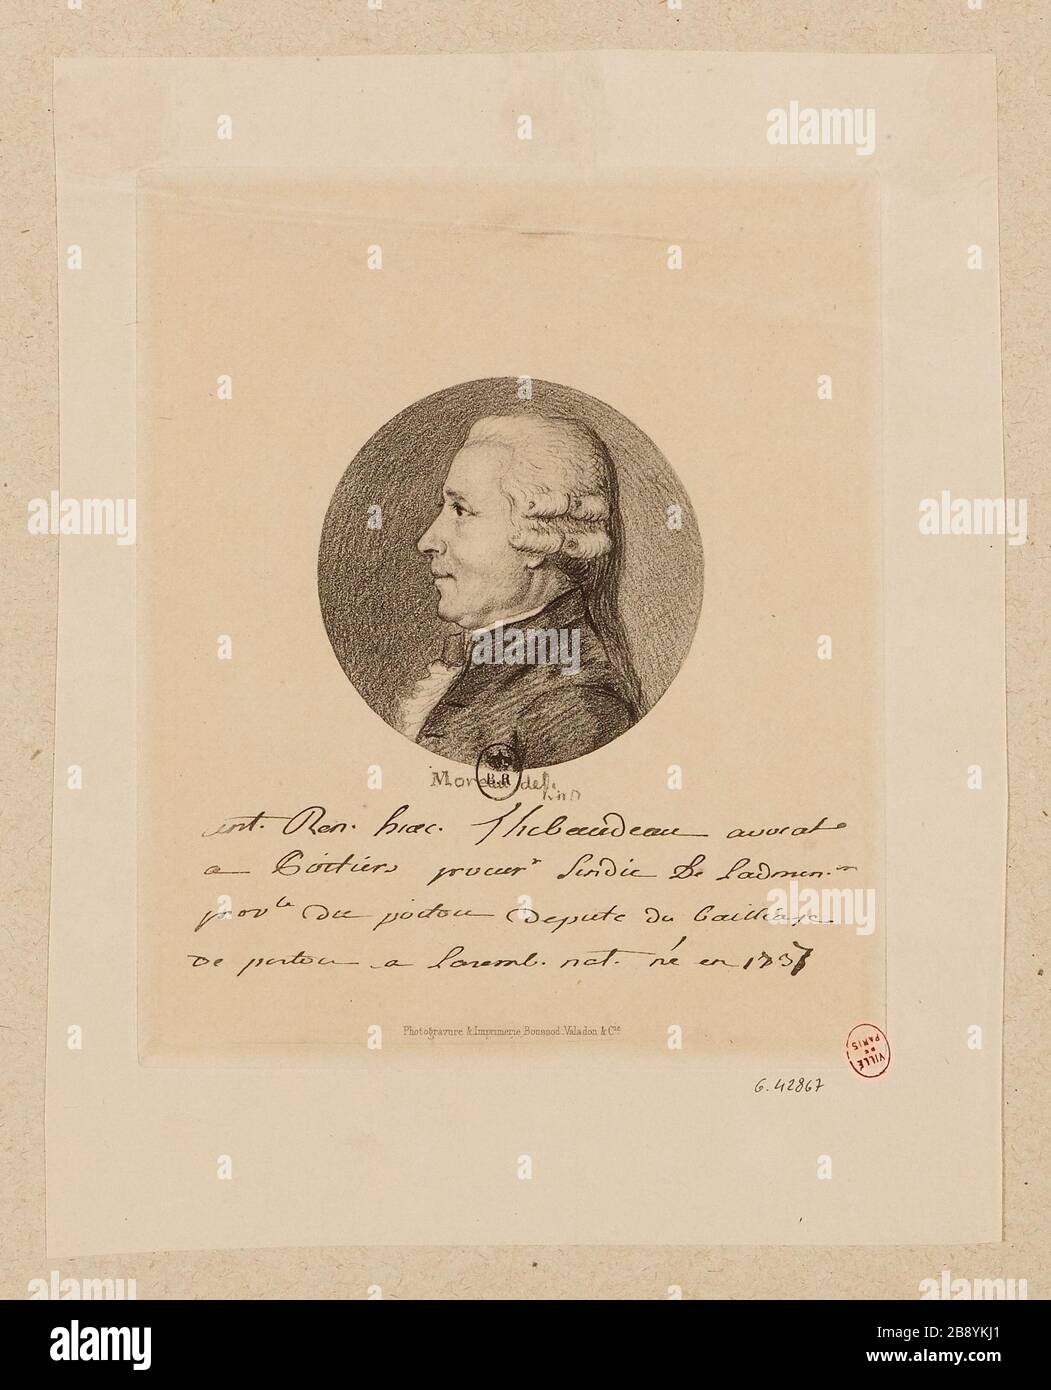 Moreau del.
ant. Ren. hiac. Thibaudeau avocat
a Poitiers procur.r Sindic De Ladmin.on
prov.le du poitou depute du Bailliage
De poitou a Lasemb. nat. né en 1737
Photogravure & Imprimerie, Boussod, Valadon & Cie
VILLE DE PARIS
G. 42867
alamy
Image ID: 2B8YKJ1
www.alamy.com